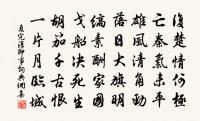 復楚情何極
亡秦氣未平
雄風清角勁
落日大旗明
縞素酬家國
戈船決死生
胡笳千古恨
一片月臨城
夏完淳即事詞典網集